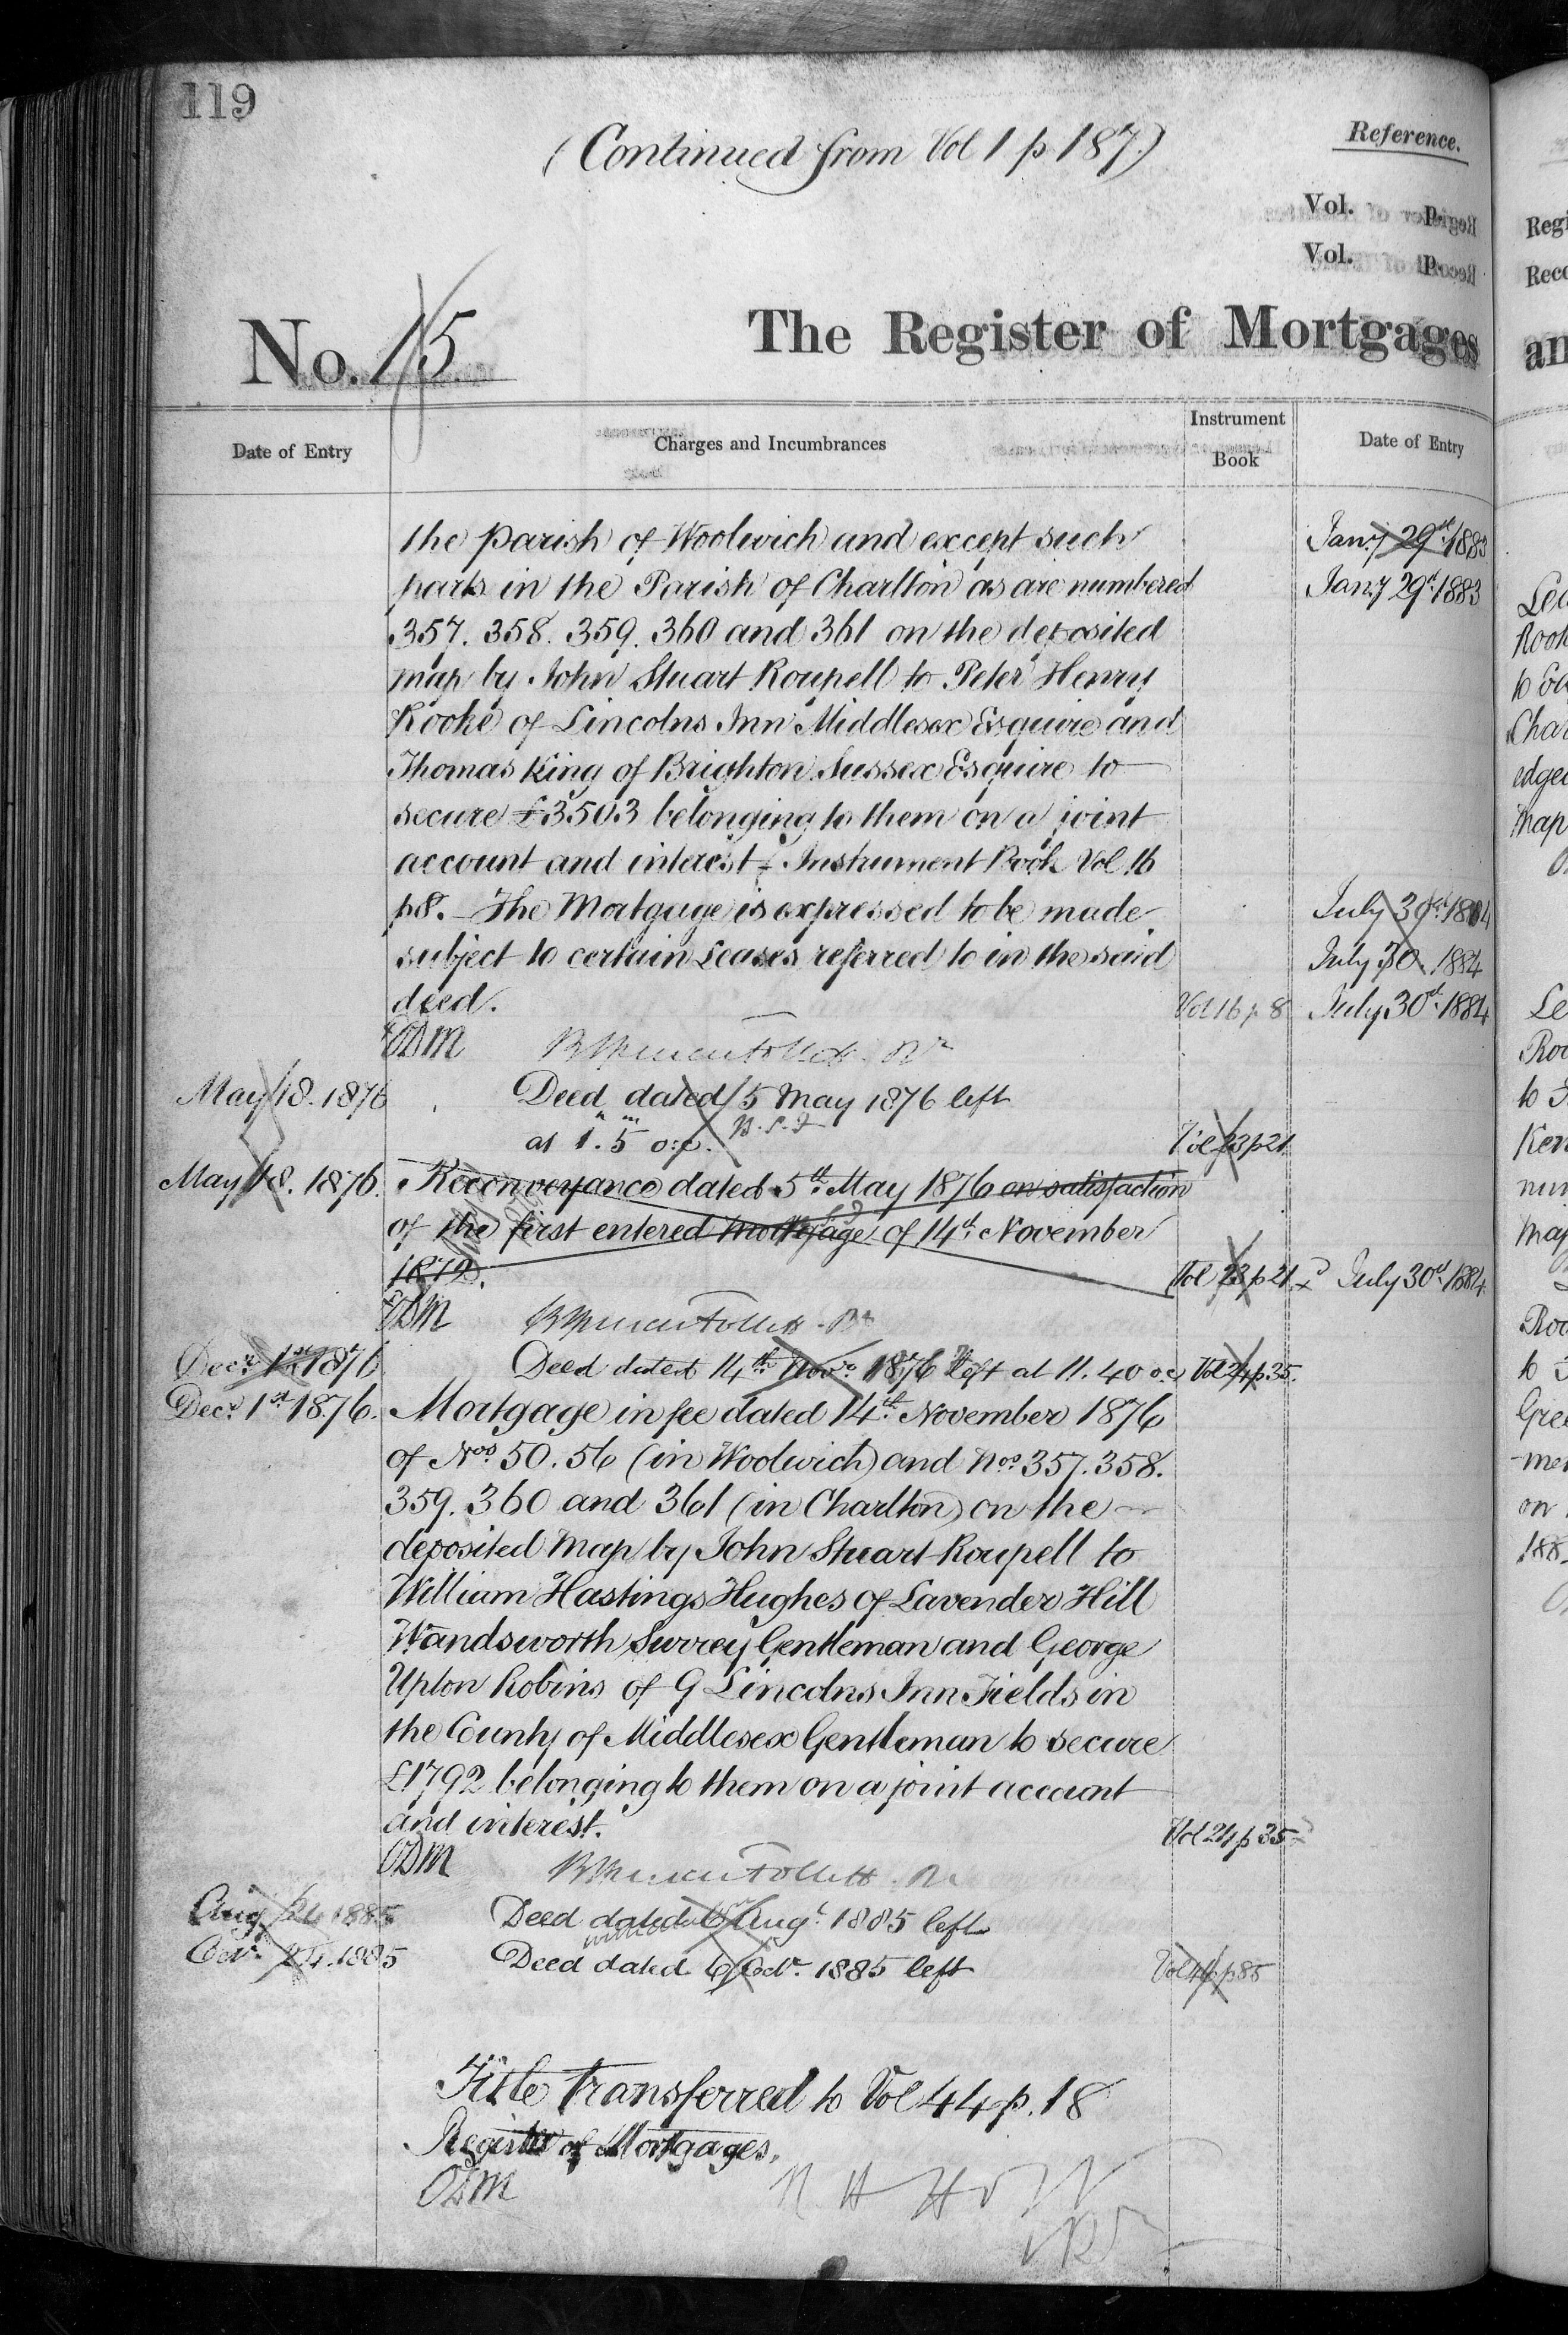 119
(Continued from Vol 1 p 187.)
Reference.
Vol. p.
Vol. p.
No. 15
The Register of Mortgages
Date of Entry
Charges and Incumbrances
Instrument Book
Date of Entry
the parish of Woolwich and except such
Jany 29th 1883
parts in the Parish of Charlton as are numbered
Jany 29th 1883
357. 358. 359. 360 and 361 on the deposited
map by John Stuart Roupell to Peter Henry
Rooke of Lincolns Inn Middlesex Esquire and
Thomas King of Brighton Sussex Esquire to
secure £3503 belonging to them on a joint
account and interest - Instrument Book Vol 16
p8. - The Mortgage is expressed to be made
July 30th 1884
subject to certain Leases referred to in the said
July 30. 1884
deed.
Vol 16 p 8
July 30th 1884
May 18. 1876
Deed dated 5 May 1876 left
at 1. 5 o.c.
Vol 23 p 21
May 18. 1876.
Reconveyance dated 5th May 1876 on satisfaction
of the first entered mortgage of 14th November
1872.
Vol 23 p 21.
July 30th 1884
Decr 1st 1876
Deed dated 14th Novr 1876 left at 11. 40 o.c
Vol 24 p 35.
Decr 1st 1876.
Mortgage in fee dated 14th November 1876
of Nos 50. 56 (in Woolwich) and Nos 357. 358.
359. 360 and 361 (in Charlton) on the
deposited Map by John Stuart Roupell to
William Hastings Hughes of Lavender Hill
Wandsworth Surrey Gentleman and George
Upton Robins of 9 Lincolns Inn Fields in
the County of Middlesex Gentleman to secure
£1792 belonging to them on a joint account
and interest.
Vol 24 p 35
Aug 24 1885
Deed dated 6 Augt 1885 left
24. 1885
Deed dated 6 1885 left
Vol 44 p 85
Title transferred to Vol 44 p. 18
Register of Mortgages.